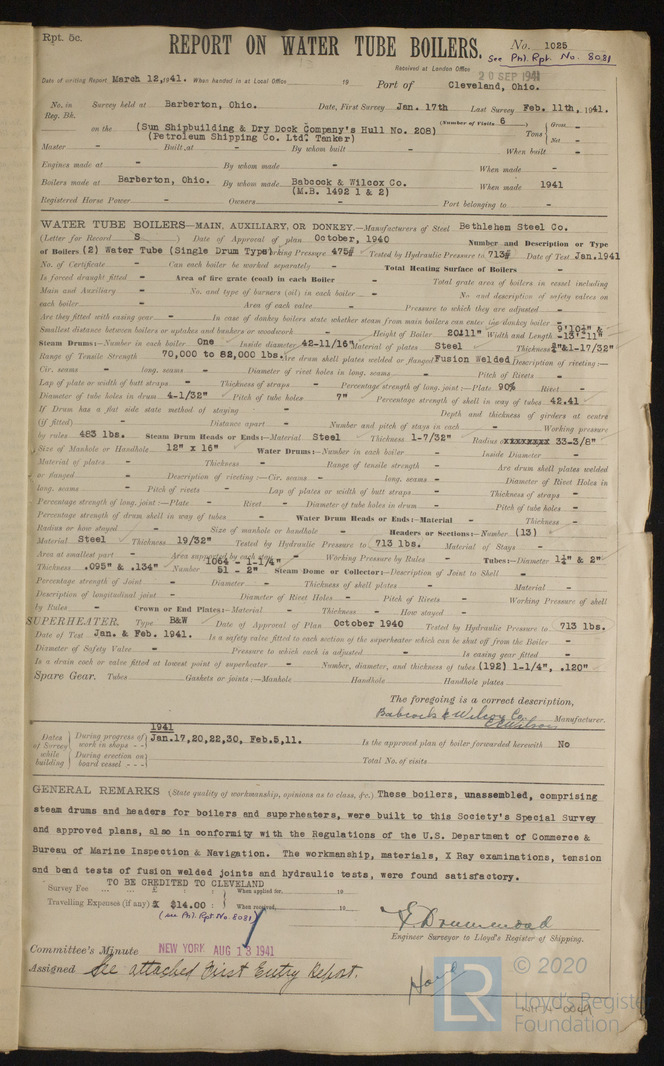 Rpt. 5c.
REPORT ON WATER TUBE BOILERS.
No. 1025
See Phl. Rpt. No. 8081
Received at London Office
20 SEP 1941
Date of writing Report March 12, 1941. When handed in at Local Office 19 Port of Cleveland, Ohio.
No. in Survey held at Barberton, Ohio. Date, First Survey Jan. 17th Last Survey Feb. 11th, 1941.
Reg. Bk.
(Number of Visits 6 )
on the (Sun Shipbuilding & Dry Dock Company's Hull No. 208)
(Petroleum Shipping Co. Ltd. Tanker)
Tons Gross -
Net -
Master - Built at - By whom built - When built -
Engines made at - By whom made - When made -
Boilers made at Barberton, Ohio. By whom made Babcock & Wilcox Co. When made 1941
(M.B. 1492 1 & 2)
Registered Horse Power - Owners - Port belonging to -
WATER TUBE BOILERS—MAIN, AUXILIARY, OR DONKEY.—Manufacturers of Steel Bethlehem Steel Co.
(Letter for Record S ) Date of Approval of plan October, 1940 Number and Description or Type
of Boilers (2) Water Tube (Single Drum Type) Working Pressure 475# Tested by Hydraulic Pressure to 713# Date of Test Jan.1941
No. of Certificate - Can each boiler be worked separately - Total Heating Surface of Boilers -
Is forced draught fitted - Area of fire grate (coal) in each Boiler - Total grate area of boilers in vessel including
Main and Auxiliary - No. and type of burners (oil) in each boiler - No and description of safety valves on
each boiler - Area of each valve - Pressure to which they are adjusted -
Are they fitted with easing gear - In case of donkey boilers state whether steam from main boilers can enter the donkey boiler -
Smallest distance between boilers or uptakes and bunkers or woodwork - Height of Boiler 20'11" Width and Length 9'10½" & 13'-11"
Steam Drums:—Number in each boiler One Inside diameter 42-11/16" Material of plates Steel Thickness ¾"&1-17/32"
Range of Tensile Strength 70,000 to 82,000 lbs. Are drum shell plates welded or flanged Fusion Welded Description of riveting:—
Cir. seams - long. seams - Diameter of rivet holes in long. seams - Pitch of Rivets -
Lap of plate or width of butt straps - Thickness of straps - Percentage strength of long. joint:—Plate 90% Rivet -
Diameter of tube holes in drum 4-1/32" Pitch of tube holes 7" Percentage strength of shell in way of tubes 42.41
If Drum has a flat side state method of staying - Depth and thickness of girders at centre
(if fitted) - Distance apart - Number and pitch of stays in each - Working pressure
by rules 483 lbs. Steam Drum Heads or Ends:—Material Steel Thickness 1-7/32" Radius xxxxxxxx 33-3/8"
Size of Manhole or Handhole 12" x 16" Water Drums:—Number in each boiler - Inside Diameter -
Material of plates - Thickness - Range of tensile strength - Are drum shell plates welded
or flanged - Description of riveting:—Cir. seams - long. seams - Diameter of Rivet Holes in
long. seams - Pitch of rivets - Lap of plates or width of butt straps - Thickness of straps -
Percentage strength of long. joint:—Plate - Rivet - Diameter of tube holes in drum - Pitch of tube holes -
Percentage strength of drum shell in way of tubes - Water Drum Heads or Ends:—Material - Thickness -
Radius or how stayed - Size of manhole or handhole - Headers or Sections:—Number (13)
Material Steel Thickness 19/32" Tested by Hydraulic Pressure to 713 lbs. Material of Stays -
Area at smallest part - Area supported by each stay - Working Pressure by Rules - Tubes:—Diameter 1¼" & 2"
Thickness .095" & .134" Number 1064 - 1-1/4" 51 - 2" Steam Dome or Collector:—Description of Joint to Shell -
Percentage strength of Joint - Diameter - Thickness of shell plates - Material -
Description of longitudinal joint - Diameter of Rivet Holes - Pitch of Rivets - Working Pressure of shell
by Rules - Crown or End Plates:—Material - Thickness - How stayed -
SUPERHEATER. Type B&W Date of Approval of Plan October 1940 Tested by Hydraulic Pressure to 713 lbs.
Date of Test Jan. & Feb. 1941. Is a safety valve fitted to each section of the superheater which can be shut off from the Boiler -
Diameter of Safety Valve - Pressure to which each is adjusted - Is easing gear fitted -
Is a drain cock or valve fitted at lowest point of superheater - Number, diameter, and thickness of tubes (192) 1-1/4", .120"
Spare Gear. Tubes Gaskets or joints:—Manhole Handhole Handhole plates
The foregoing is a correct description,
Babcock & Wilcox Co. Manufacturer.
Dates of Survey while building
During progress of work in shops - - 1941 Jan.17,20,22,30, Feb.5,11. Is the approved plan of boiler forwarded herewith No
During erection on board vessel - - - Total No. of visits
GENERAL REMARKS (State quality of workmanship, opinions as to class, &c.) These boilers, unassembled, comprising
steam drums and headers for boilers and superheaters, were built to this Society's Special Survey
and approved plans, also in conformity with the Regulations of the U.S. Department of Commerce &
Bureau of Marine Inspection & Navigation. The workmanship, materials, X Ray examinations, tension
and bend tests of fusion welded joints and hydraulic tests, were found satisfactory.
TO BE CREDITED TO CLEVELAND
Survey Fee ... ... £ : : When applied for, 19
Travelling Expenses (if any) £ $14.00 : When received, 19
(see Phl. Rpt. No. 8081)
Engineer Surveyor to Lloyd's Register of Shipping.
Committee's Minute NEW YORK AUG 13 1941
Assigned See attached First Entry Report.
LR
© 2020
Lloyd's Register
Foundation